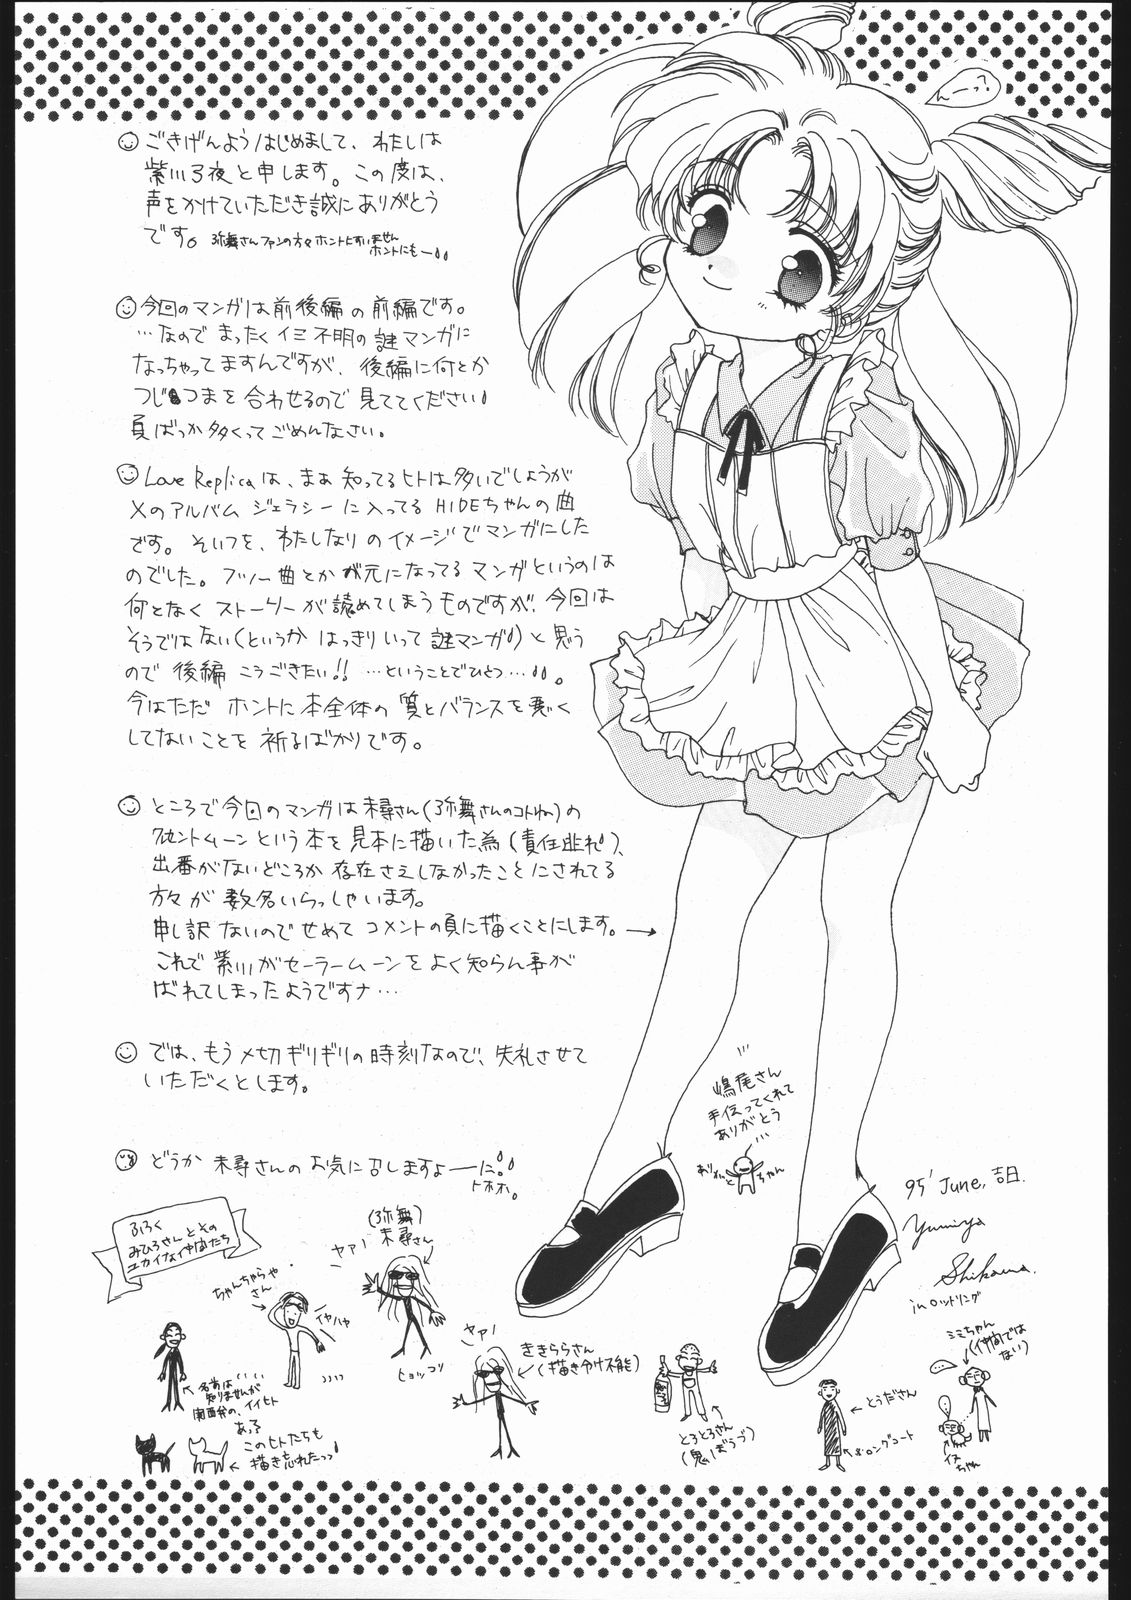 んーっ?
ごきげんよう はじめまして、わたしは
紫川弓夜と申します。この度は、
声をかけていただき誠にありがとう
です。弥舞さんファンの方々ホントにすいません
ホントにもー
今回のマンガは前後編の前編です。
…なので まったく イミ不明の謎マンガに
なっちゃってますんですが、後編に何とか
つじつまを合わせるので見ててください
負ばっか多くってごめんなさい。
Love Replicaは、まぁ知ってるヒトは多いでしょうが
Xのアルバム ジェラシーに入ってる HIDEちゃんの曲
です。そいつを、わたしなりのイメージでマンガにした
のでした。フツー曲とかが元になってるマンガというのは
何となくストーリーが読めてしまうものですが、今回は
そうではない(というか はっきりいって謎マンガ)と思う
ので 後編 こうごきたい!! …ということでひとつ…。
今はただ ホントに本全体の質とバランスを悪く
してないことを祈るばかりです。
ところで今回のマンガは未尋さん(弥舞さんのコトね)の
クレセントムーンという本を見本に描いた為(責任逃れ)、
出番がないどころか存在さえしなかったことにされてる
方々が数名いらっしゃいます。
申し訳ないのでせめてコメントの頁に描くことにします。→
これで紫川がセーラームーンをよく知らん事が
ばれてしまったようですナ…
では、もう〆切ギリギリの時刻なので、失礼させて
いただくとします。
どうか 未尋さんのお気に召しますよーに
トホホ。
嶋尾さん
手伝ってくれて
ありがとう
ちゃん
95' June, 吉日.
Yumiya
Shikawa.
in ロットリング
ふろく
みひろさんとその
ユカイな仲間たち
ちゃんちゃらや
さん
イヤハヤ
ヤァ!
(弥舞)
未尋さん
ヒョッコリ
ヤァ!
ききららさん
(描き分け不能)
名前は
知りませんが
関西弁の、イイヒト
あっ
このヒトたちも
描き忘れたっっ
とろとろさん
(鬼ころづ)
とうださん
ロングコート
ミミちゃん
(仲間では
ない)
イチ
ちゃん